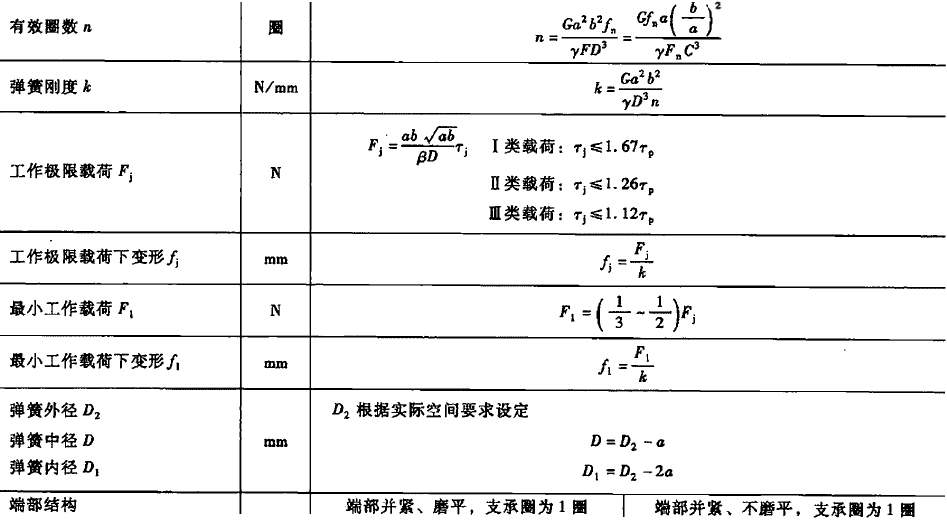 有效圈数 n 圈 n = Ga²b²fₙ / γFD³ = Gfₙa(b/a)² / γFₙC³
弹簧刚度 k N/mm k = Ga²b² / γD³n
工作极限载荷 Fj N Fj = ab√ab / βD τj Ⅰ类载荷：τj ≤ 1.67τp
Ⅱ类载荷：τj ≤ 1.26τp
Ⅲ类载荷：τj ≤ 1.12τp
工作极限载荷下变形 fj mm fj = Fj / k
最小工作载荷 F₁ N F₁ = (1/3 ~ 1/2)Fj
最小工作载荷下变形 f₁ mm f₁ = F₁ / k
弹簧外径 D₂ D₂ 根据实际空间要求设定
弹簧中径 D mm D = D₂ - a
弹簧内径 D₁ D₁ = D₂ - 2a
端部结构 端部并紧、磨平，支承圈为 1 圈 端部并紧、不磨平，支承圈为 1 圈